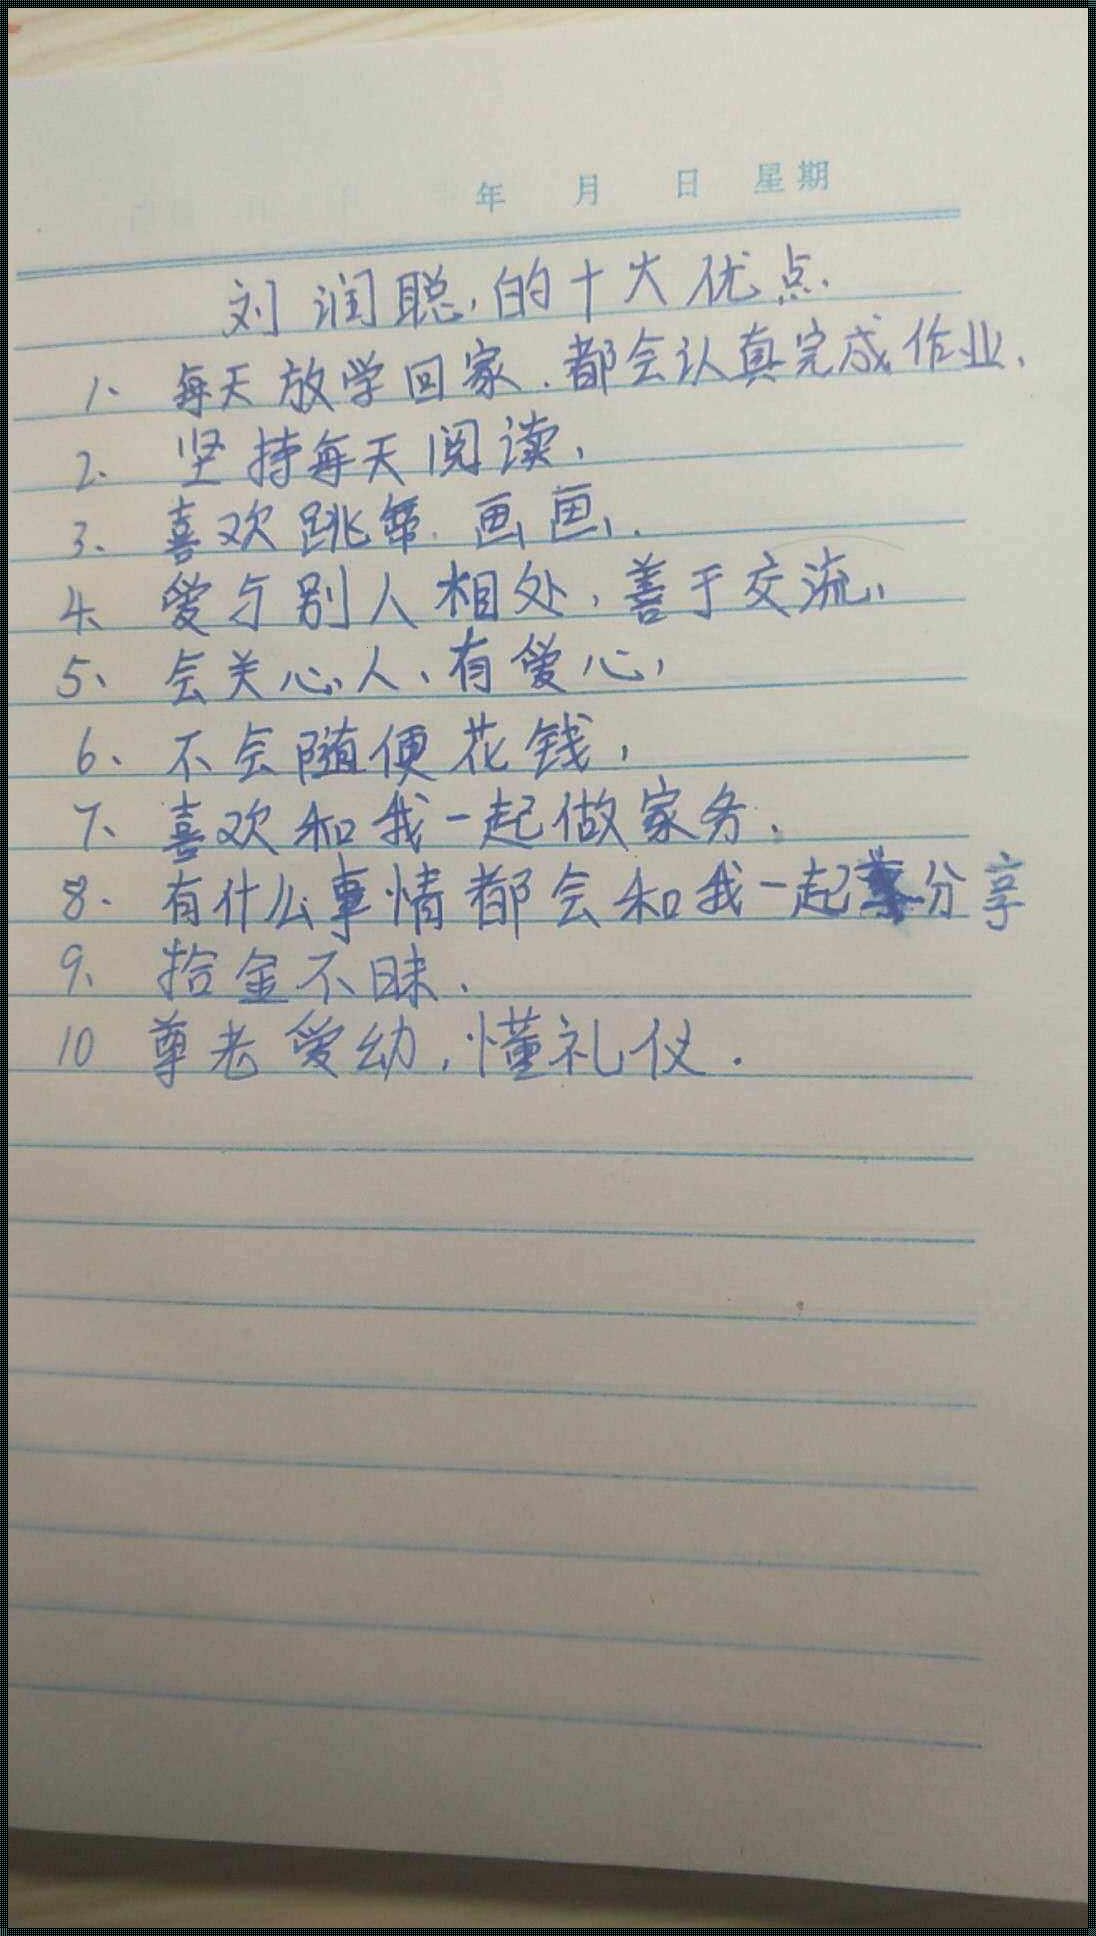 年 月 日 星期
刘润聪,的十大优点.
1、每天放学回家.都会认真完成作业、
2、坚持每天阅读,
3、喜欢跳舞.画画,.
4、爱与别人相处,善于交流,
5、会关心,人、有爱心,
6、不会随便花钱,
7、喜欢和我一起做家务.
8.有什么事情都会和我一起分享
9、拾金不昧.
10 尊老爱幼,懂礼仪.